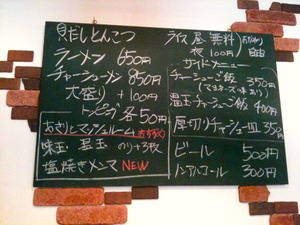 貝だしとんこつ
ラーメン 650円
チャーシューメン 850円
大盛り +100円
トッピング 各50円
あさりとマッシュルーム
味玉 昆玉 のり+3枚
塩焼きメンマ NEW
ライス 昼 無料
夜 100円
サイドメニュー
チャーシューご飯 350円
(マヨネーズ味あり)
温玉チャーシューご飯 400円
厚切りチャーシュー皿 350円
ビール 500円
ノンアルコール 300円